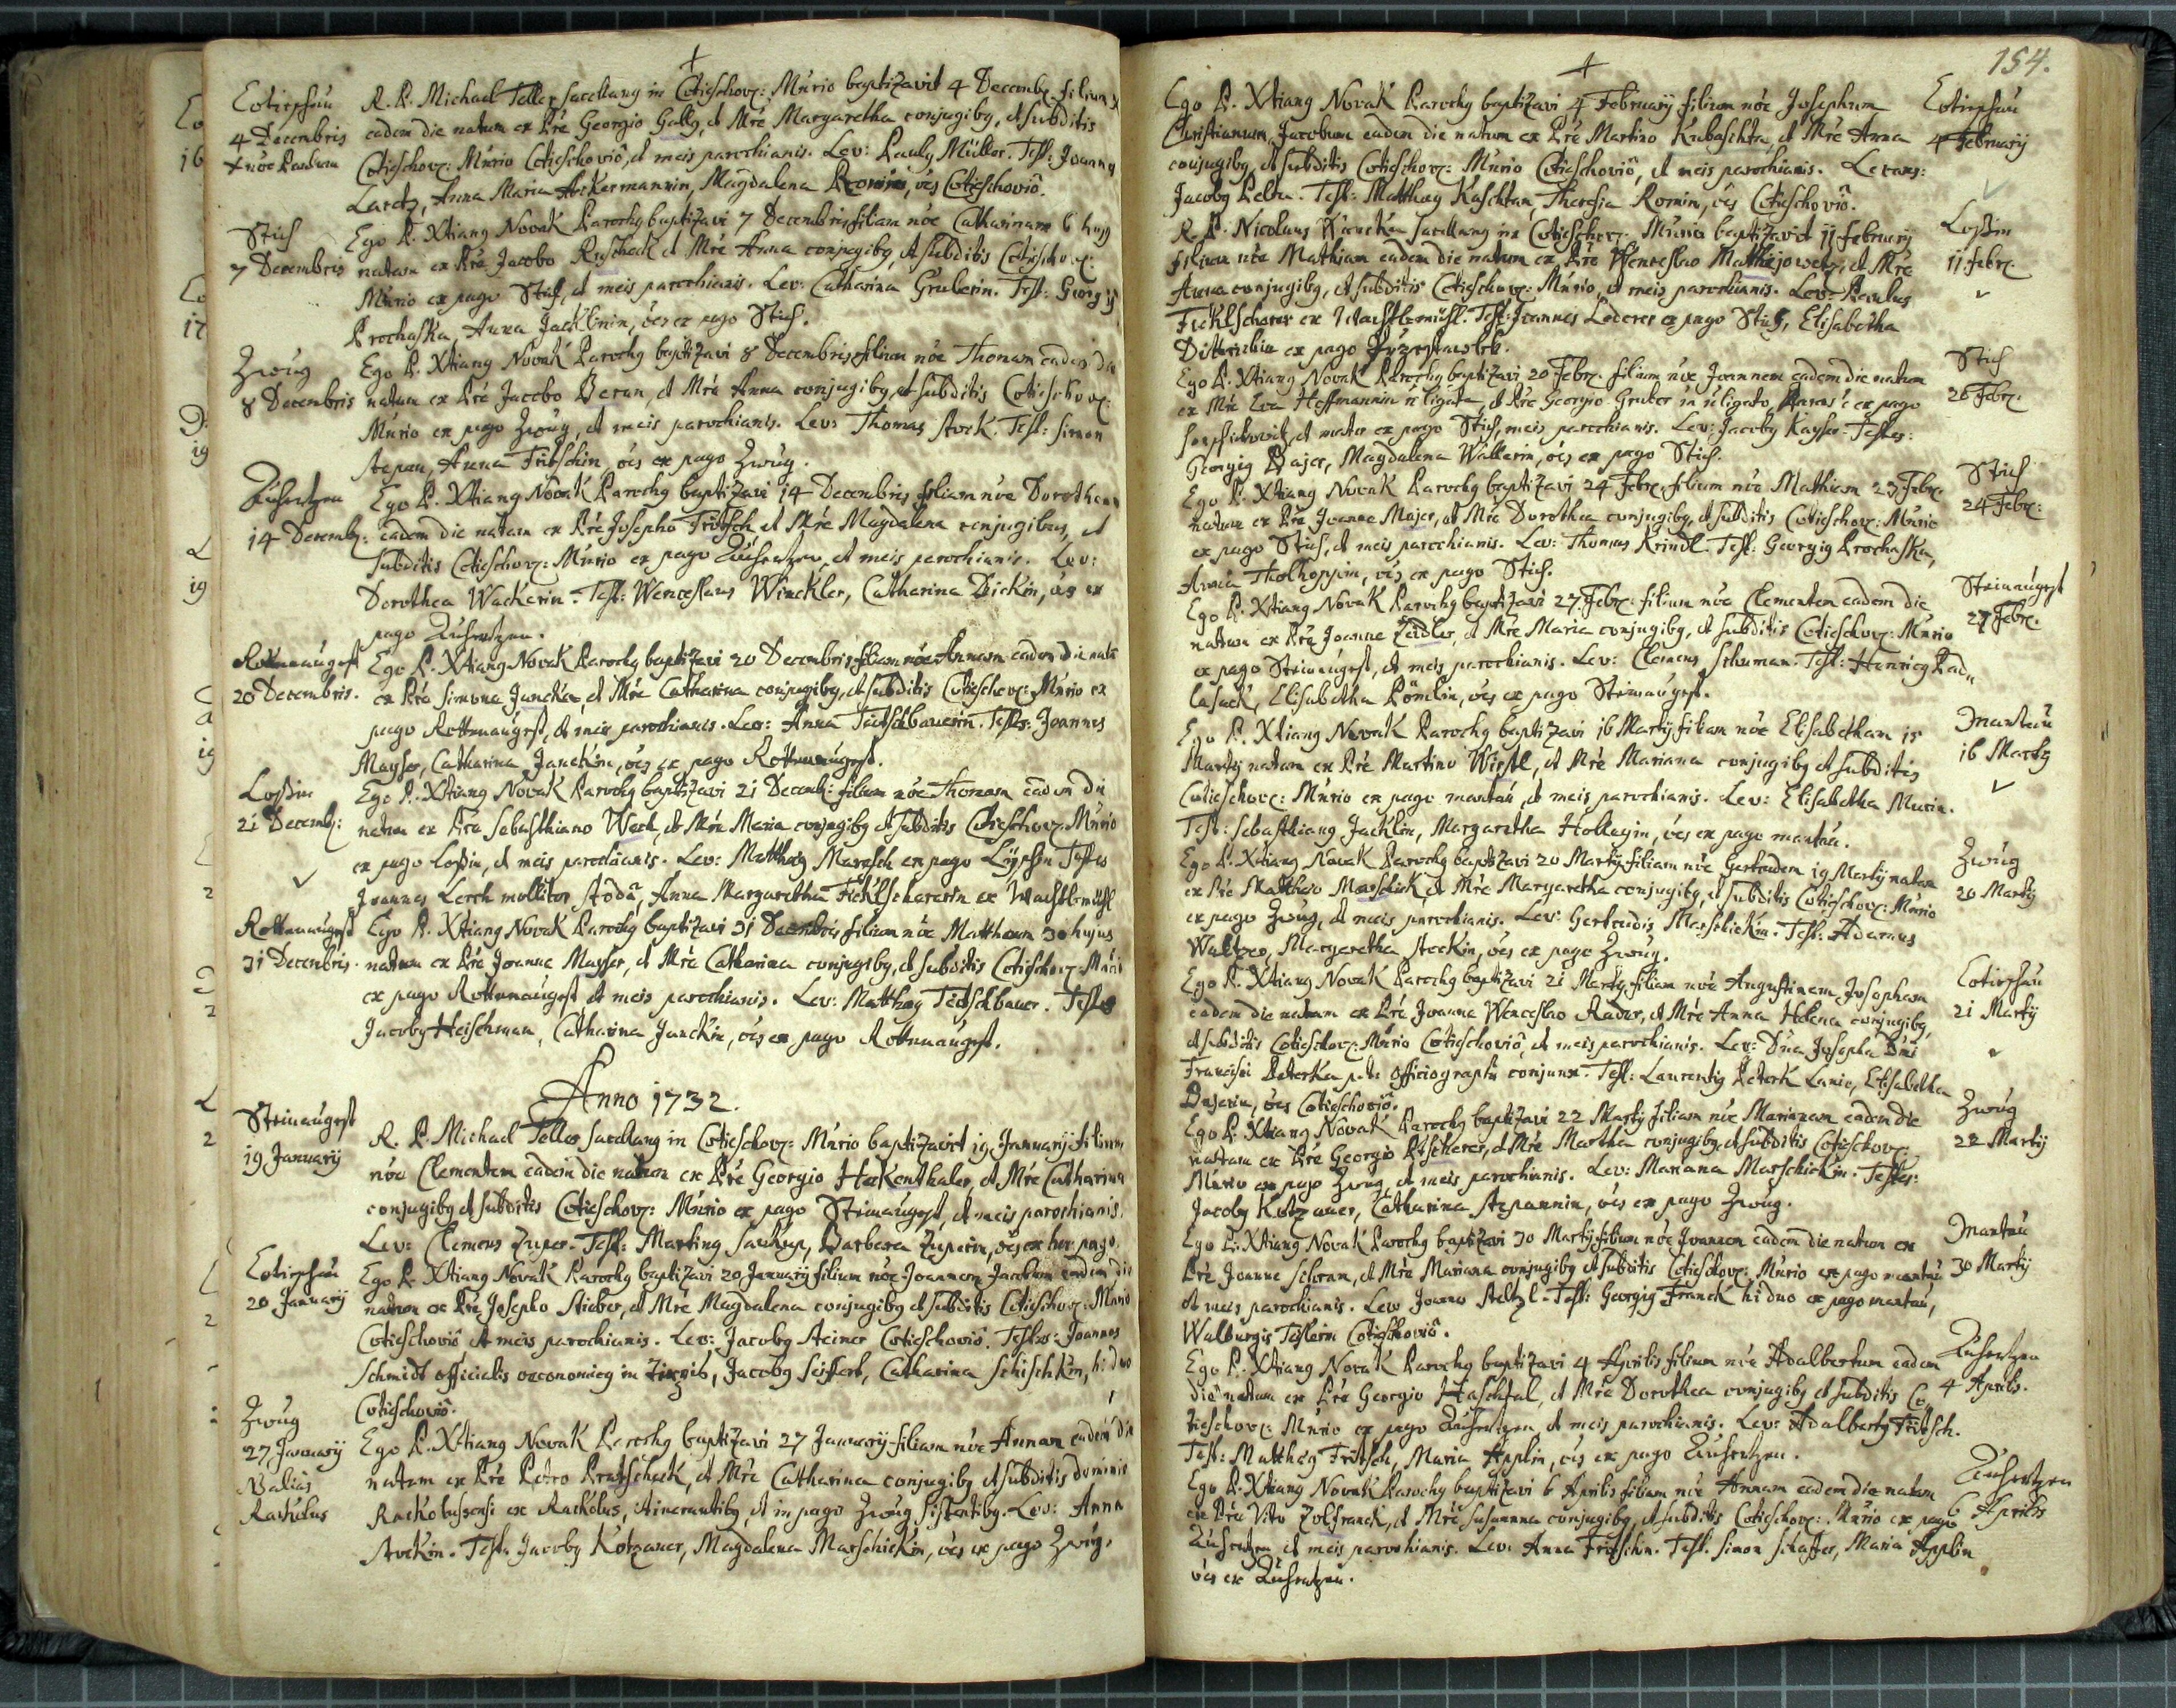 +
Cotieschau R. P. Michael Teller Sacellanq in Cotieschov: Mûrio baptizavit 4 Decemb: filium
4 Decembris eadem die natum ex Pre Georgio Gally, et Mre Margaretha conjugibq, et subditis
nõe Paulum Cotieschov: Mûrio Cotieschoviô, et meis parochianis. Lev: Paulq Müller. Test: Joannq
Laretz, Anna Maria Ackermannin, Magdalena Romin, oẽs Cotieschoviô.
Stich Ego P. Xtianq Novak Parochq baptizavi 7 Decembris filiam nõe Catharinam 6 hujq
7 Decembris natam ex Pre Jacobo Ruscheck et Mre Anna conjugibq, et subditis Cotieschov:
Mûrio ex pago Stich, et meis parochianis. Lev: Catharina Gruberin. Test: Georgiq
Prochaska, Anna Jacklinin, oẽs ex pago Stich.
Zwûg Ego P. Xtianq Novak Parochq baptizavi 8 Decembris filium nõe Thomam eadem die
8 Decembris natum ex Pre Jacobo Beran, et Mre Anna conjugibq, et subditis Cotieschov:
Mûrio ex pago Zwûg, et meis parochianis. Lev: Thomas Stock. Test: Simon
Stepan, Anna Fritschin, oẽs ex pago Zwûg.
Zûhertzen Ego P. Xtianq Novak Parochq baptizavi 14 Decembris filiam nõe Dorotheam
14 Decemb: eadem die natam ex Pre Josepho Fritsch et Mre Magdalena conjugibus, et
subditis Cotieschov: Mûrio ex pago Zûhertzen, et meis parochianis. Lev:
Dorothea Wackerin. Test: Wenceslaus Winckler, Catharina Dickin, oẽs ex
pago Zûhertzen.
Rottenaûgest Ego P. Xtianq Novak Parochq baptizavi 20 Decembris filiam nõe Annam eadem die natã
20 Decembris. ex Pre Simone Junckn, et Mre Catharina conjugibq, et subditis Cotieschov: Mûrio ex
pago Rottenaûgest, et meis parochianis. Lev: Anna Teitschbauerin. Testes: Joannes
Mayser, Catharina Junckin, oẽs ex pago Rottenaûgest.
Losßin Ego P. Xtianq Novak Parochq baptizavi 21 Decemb: filium nõe Thomam eadem die
21 Decemb: natum ex Pre Sebasthiano Weck, et Mre Maria conjugibq et subditis Cotieschov: Mûrio
ex pago Losßin, et meis parochianis. Lev: Matthaeq Maresch ex pago Lippßen Testes
Joannes Lerch mollitor, Anna Margaretha Ficklschererin ex Wachtlmühl
Rottenaûgest Ego P. Xtianq Novak Parochq baptizavi 31 Decembris filium nõe Mattheum 30 hujus
31 Decembris. natum ex Pre Joanne Mayser, et Mre Catharina conjugibq, et subditis Cotieschov: Mûrio
ex pago Rottenaûgest et meis parochianis. Lev: Matthaeq Teitschbauer. Testes
Jacobq Heischman, Catharina Junckin, oẽs ex pago Rottenaûgest.
Anno 1732.
Steinaûgest R. P. Michael Teller Sacellanq in Cotieschov: Mûrio baptizavit 19 Januarij filium
19 Januarij nõe Clementem eadem die natum ex Pre Georgio Heckenthaler, et Mre Catharina
conjugibq et subditis Cotieschov: Mûrio ex pago Steinaûgest, et meis parochianis.
Lev: Clemens Zuper. Test: Martinq Saukup, Barbara Zuperin, oẽs ex hoc pago.
Cotieschau Ego P. Xtianq Novak Parochq baptizavi 20 Januarij filium nõe Joannem Jacobum eadem die
20 Januarij natum ex Pre Josepho Stieber, et Mre Magdalena conjugibq et subditis Cotieschov: Mûrio
Cotieschoviô et meis parochianis. Lev: Jacobq Steiner Cotieschoviô. Testes: Joannes
Schmidt officialis oeconomicq in, Jacobq Seiffert, Catharina Schischkin, hi duo
Cotieschoviô.
Zwûg
27 Januarij Ego P. Xtianq Novak Parochq baptizavi 27 Januarij filiam nõe Annam eadem die
Natam ex Pre Petro Pratscheck, et Mre Catharina conjugibq et subditis dominio
Rackolus Rackolussensi ex Rackolus, itinerantibq, et in pago Zwûg sistentibq. Lev: Anna
Stockin. Test: Jacobq Kotzauer, Magdalena Marschickin, oẽs ex pago Zwûg.
154.
+
Ego P. Xtianq Novak Parochq baptizavi 4 Februarij filium nõe Josephum Cotieschau
Christianum Jacobum eadem die natum ex Pre Martino Kubaschta, et Mre Anna 4 Februarij
conjugibq, et subditis Cotieschov: Mûrio Cotieschoviô, et meis parochianis. Levans:
Jacobq Pelta. Test: Matthaeq Kaschtan, Theresia Romin, oẽs Cotieschoviô.
R. P. Nicolaus Kuncken Sacellanq in Cotieschov: Mûrio baptizavit 11 februarij Losßin
filium nõe Mathiam eadem die natum ex Pre Wenceslao Mathejowetz, et Mre 11 febr:
Anna conjugibq, et subditis Cotieschov: Mûrio, et meis parochianis. Lev: Paulus
Ficklscherer ex Wachtlmühl. Test: Joannes Lederer ex pago Stich, Elisabetha
Dittrichin ex pago
Ego P. Xtianq Novak Parochq baptizavi 20 Febr: filium nõe Joannem eadem die natum Stich
ex Mre Eva Hoffmannin, et Pre Georgio Gruber, Parens ex pago 20 Febr:
et mater ex pago Stich, meis parochianis. Lev: Jacobq Kayser. Testes:
Georgiq Bajer, Magdalena Wallerin, oẽs ex pago Stich.
Ego P. Xtianq Novak Parochq baptizavi 24 Febr: filium nõe Mathiam 23 Febr: Stich
natum ex Pre Joanne Majer, et Mre Dorothea conjugibq, et subditis Cotieschov: Mûrio 24 Febr:
ex pago Stich, et meis parochianis. Lev: Thomas Krindl. Test: Georgiq Prochaska,
Anna, oẽs ex pago Stich.
Ego P. Xtianq Novak Parochq baptizavi 27 Febr: filium nõe Clementem eadem die Steinaûgest
natum ex Pre Joanne Zeidler, et Mre Maria conjugibq, et subditis Cotieschov: Mûrio 27 Febr:
ex pago Steinaûgest, et meis parochianis. Lev: Clemens Schuman. Test: Henricq Kad„
lasack, Elisabetha Römlin, oẽs ex pago Steinaûgest.
Ego P. Xtianq Novak Parochq baptizavi 16 Martij filiam nõe Elisabetham 15 Mantau
Martij natam ex Pre Martino Wistl, et Mre Mariana conjugibq et subditis 16 Martij
Cotieschov: Mûrio ex pago mantaû, et meis parochianis. Lev: Elisabetha Murin.
Test: Sebasthianq Jacklin, Margaretha Hollegin, oẽs ex pago mantau.
Ego P. Xtianq Novak Parochq baptizavi 20 Martij filiam nõe Gertrudem 19 Martij natam Zwûg
ex Pre Matthaeo Marschick, et Mre Margaretha conjugibq, et subditis Cotieschov: Mûrio 20 Martij
ex pago Zwûg, et meis parochianis. Lev: Gertrudis Marschickin. Test: Adamus
Waltzer, Margaretha Stockin, oẽs ex pago Zwûg.
Ego P. Xtianq Novak Parochq baptizavi 21 Martij filiam nõe Augustinam Josepham Cotieschau
eadem die natam ex Pre Joanne Wenceslao Rader, et Mre Anna Helena conjugibq, 21 Martij
et subditis Cotieschov: Mûrio Cotieschoviô, et meis parochianis. Lev: Dña Josepha Dni
Francisci Peterka p.t. officiographi conjunx. Test: Laurentiq Peterk Lanio, Elisabetha
Bajerin, oẽs Cotieschoviô.
Ego P. Xtianq Novak Parochq baptizavi 22 Martij filiam nõe Marianam eadem die Zwûg
natam ex Pre Georgio Ptscherer, et Mre Martha conjugibq, et subditis Cotieschov: 22 Martij
Mûrio ex pago Zwûg, et meis parochianis. Lev: Mariana Marschickin. Testes:
Jacobq Kotzauer, Catharina Stepannin, oẽs ex pago Zwûg.
Ego P. Xtianq Novak Parochq baptizavi 30 Martij filium nõe Joannem eadem die natum ex Mantau
Pre Joanne Schram, et Mre Mariana conjugibq et subditis Cotieschov: Mûrio ex pago mantaû 30 Martij
et meis parochianis. Lev Joannes Steltzl. Test: Georgiq Franck hi duo ex pago mantaû,
Walburgis Teslerin Cotieschoviô.
Ego P. Xtianq Novak Parochq baptizavi 4 Aprilis filium nõe Adalbertum eadem Zûhertzen
die natum ex Pre Georgio Haschtal, et Mre Dorothea conjugibq et subditis Co„ 4 Aprilis.
tieschov: Mûrio ex pago Zûhertzen, et meis parochianis. Lev: Adalbertq Fritsch.
Test: Matthaeq Fritsch, Maria Applin, oẽs ex pago Zûhertzen.
Ego P. Xtianq Novak Parochq baptizavi 6 Aprilis filiam nõe Annam eadem die natam Zûhertzen
ex Pre Vito Zolfranck, et Mre Susanna conjugibq, et subditis Cotieschov: Mûrio ex pago 6 Aprilis
Zûhertzen et meis parochianis. Lev: Anna Fritschin. Test. Simon Schaffer, Maria Applin
oẽs ex Zûhertzen.